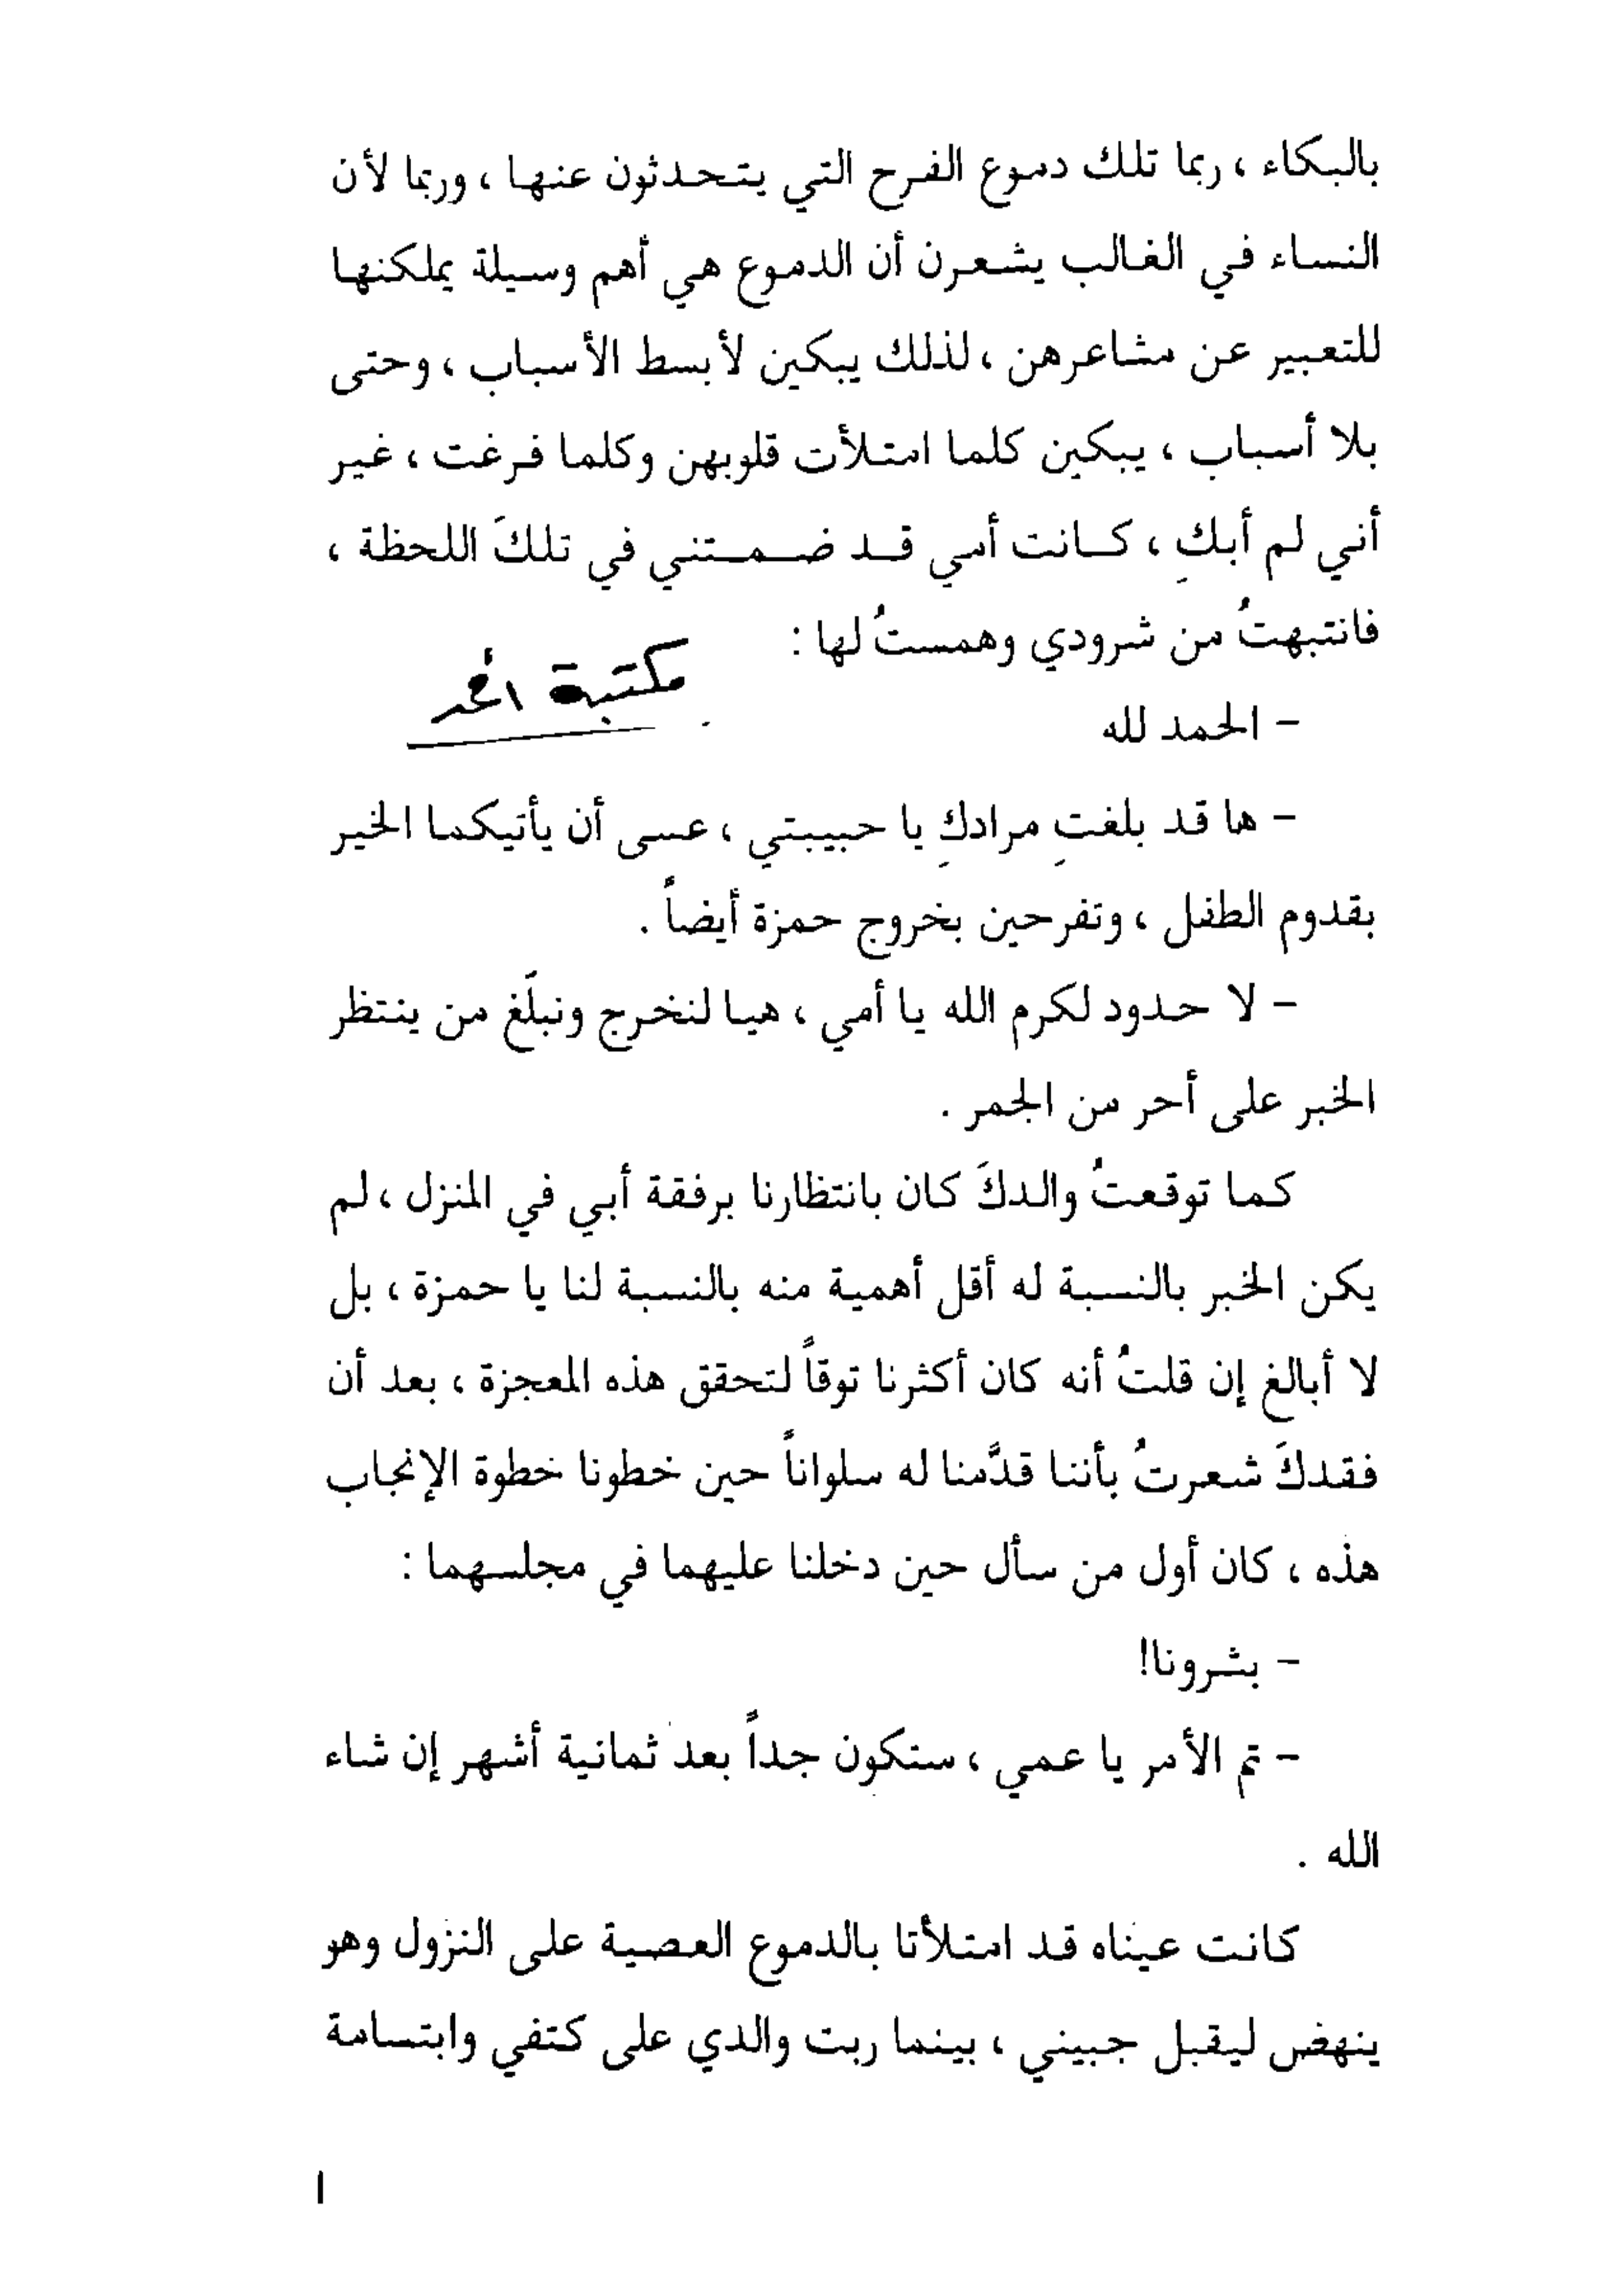 بالبكاء ، ربما تلك دموع الفرح التي يتحدثون عنها ، وربما لأن
النساء في الغالب يشعرن أن الدموع هي أهم وسيلة يملكنها
للتعبير عن مشاعرهن ، لذلك يبكين لأبسط الأسباب ، وحتى
بلا أسباب ، يبكين كلما امتلأت قلوبهن وكلما فرغت ، غير
أني لم أبكِ ، كانت أمي قد ضمتني في تلكَ اللحظة ،
فانتبهتُ من شرودي وهمستُ لها :
مكتبة
– الحمد لله
– ها قد بلغتِ مرادكِ يا حبيبتي ، عسى أن يأتيكما الخير
بقدوم الطفل ، وتفرحين بخروج حمزة أيضاً .
– لا حدود لكرم الله يا أمي ، هيا لنخرج ونبلَغ من ينتظر
الخبر على أحر من الجمر .
كما توقعتُ والدكَ كان بانتظارنا برفقة أبي في المنزل ، لم
يكن الخبر بالنسبة له أقل أهمية منه بالنسبة لنا يا حمزة ، بل
لا أبالغ إن قلتُ أنه كان أكثرنا توقاً لتحقق هذه المعجزة ، بعد أن
فقدكَ شعرتُ بأننا قدَّمنا له سلواناً حين خطونا خطوة الإنجاب
هذه ، كان أول من سأل حين دخلنا عليهما في مجلسهما :
– بشرونا!
– تم الأمر يا عمي ، ستكون جداً بعد ثمانية أشهر إن شاء
الله .
كانت عيناه قد امتلأتا بالدموع العصية على النزول وهو
ينهض ليقبل جبيني ، بينما ربت والدي على كتفي وابتسامة